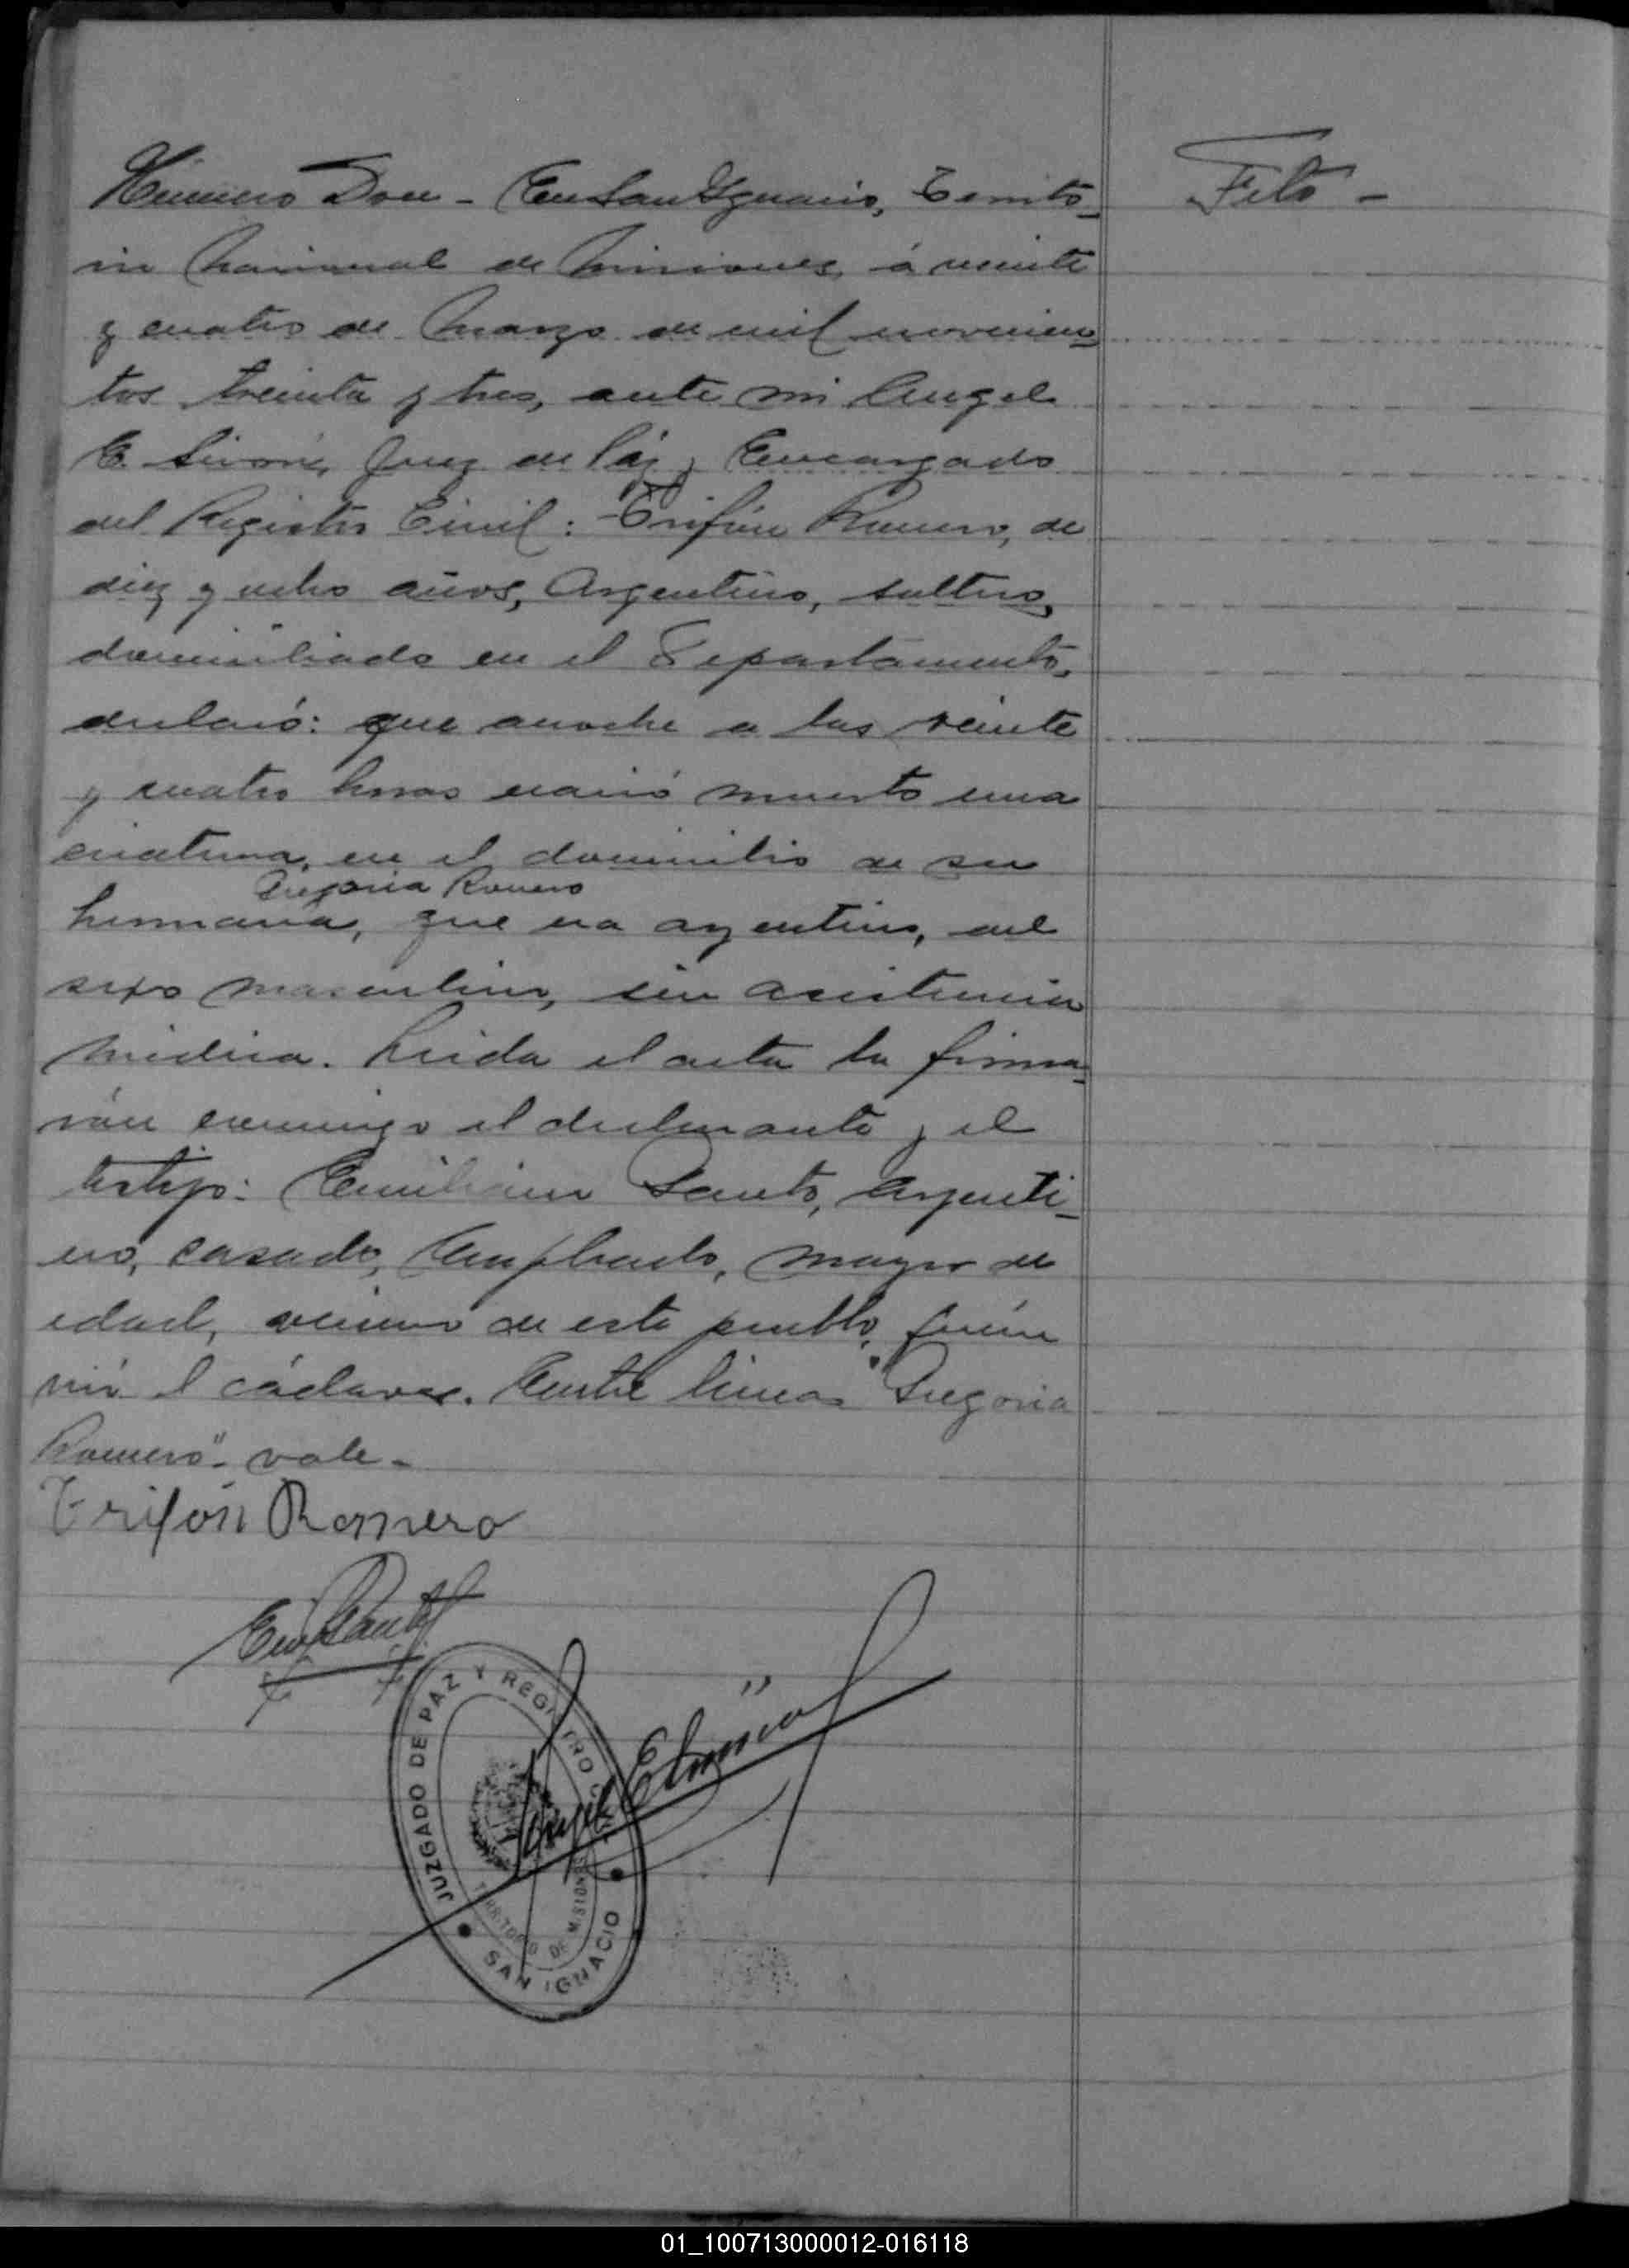 Número Doce - En San Ignacio, Territo-
Feto -
rio Nacional de Misiones, á veinte
y cuatro de Marzo de mil novecien-
tos treinta y tres, ante mi Angel
E. Juez de Páz y Encargado
del Registro Civil: Trifón Romero, de
diez y ocho años, Argentino, soltero,
domiciliado en el Departamento,
declaró: que anoche a las veinte
y cuatro horas nació muerto una
criatura, en el domicilio de su
Gregoria Romero
hermana, que era argentino, del
sexo masculino, sin asistencia
médica. Leida el acta la firma-
rón conmigo el declarante y el
testigo: Emiliano Santo, Argenti-
no, casado, Empleado, mayor de
edad, vecino de este pueblo, quién
vió el cádaver. Entre lineas "Gregoria
Romero" - vale -
Trifón Romero
JUZGADO DE PAZ Y REGISTRO
TERRITORIO DE MISIONES
SAN IGNACIO
01_100713000012-016118